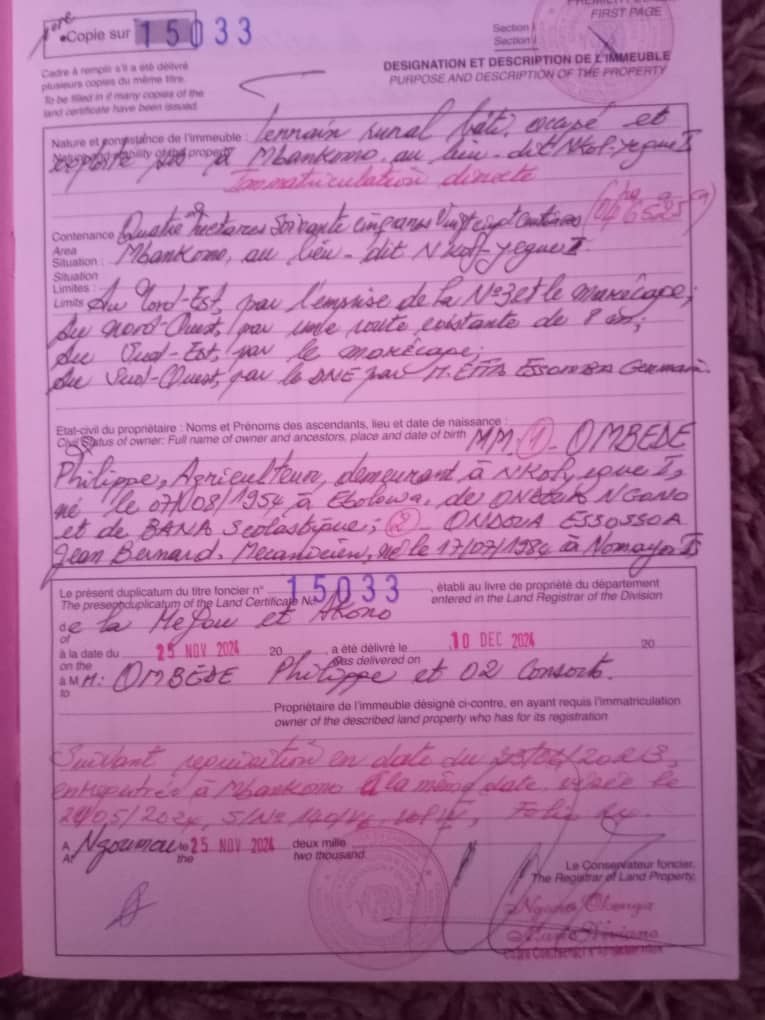 PREMIÈRE PAGE
FIRST PAGE
•Copie sur 15033
Section I
Section I
Cadre à remplir s'il a été délivré
plusieurs copies du même titre.
To be filled in if many copies of the
land certificate have been issued.
DESIGNATION ET DESCRIPTION DE L'IMMEUBLE
PURPOSE AND DESCRIPTION OF THE PROPERTY
Nature et consistance de l'immeuble : terrain rural bâti, occupé et
of the property à Mbankomo, au lieu-dit Nkol-yegue I
Immatriculation directe
Contenance Quatre hectares Soixante cinq ares Vingt cinq centiares (04 ha 65 a 25 ca)
Area
Situation : Mbankomo, au lieu-dit Nkol-yegue I
Situation
Limites : Au Nord-Est, par l'emprise de la N°3 et le marécage;
Limits
Au Nord-Ouest, par une route existante de 8 m;
Au Sud-Est, par le marécage;
Au Sud-Ouest, par le DNE par M. ETTA ESSOMBA Germain.
Etat-civil du propriétaire : Noms et Prénoms des ascendants, lieu et date de naissance :
Civil Status of owner: Full name of owner and ancestors, place and date of birth MM. 1 - OMBEDE
Philippe, Agriculteur, demeurant à Nkol-yegue I,
né le 07/08/1954 à Ebolowa, de NGONO
et de BANA Scolastique; 2 - ONDOUA ESSOSSOA
Jean Bernard, Mécanicien, né le 17/07/1984 à Nomayos I
Le présent duplicatum du titre foncier n° 15033, établi au livre de propriété du département
The present duplicatum of the Land Certificate No. entered in the Land Registrar of the Division
de la Mefou et Akono
of
à la date du 25 NOV 2024 20 , a été délivré le 10 DEC 2024 20
on the was delivered on
à M M: OMBEDE Philippe et 02 Consorts.
to
Propriétaire de l'immeuble désigné ci-contre, en ayant requis l'immatriculation
owner of the described land property who has for its registration
Suivant réquisition en date du
enregistrée à Mbankomo à la même date, visée le
Folio
A Ngoumou le 25 NOV 2024 deux mille
At the two thousand
Le Conservateur foncier.
The Registrar of Land Property.